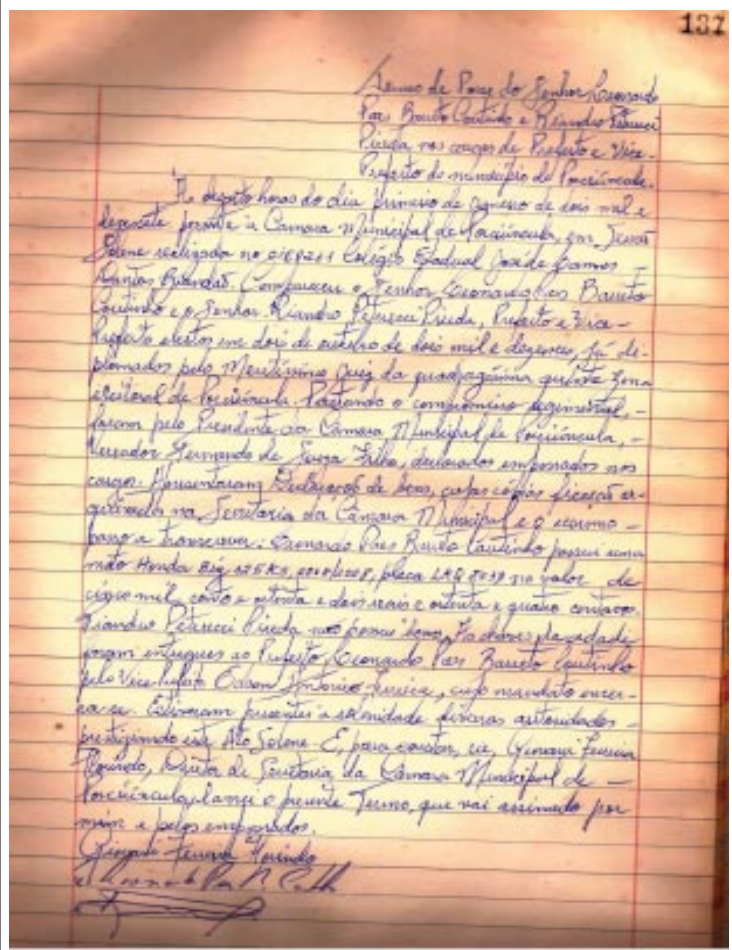 137
Termo de Posse do Senhor Leonardo
Paes Barreto Coutinho e Riandro Petrucci
Pireda nos cargos de Prefeito e Vice-
Prefeito do município de Porciúncula.
Às dezoito horas do dia primeiro de janeiro de dois mil e
dezessete perante a Câmara Municipal de Porciúncula, em Sessão
Solene realizada no Colégio Estadual José de Lannes
Dantas Brandão. Compareceu o Senhor Leonardo Paes Barreto
Coutinho e o Senhor Riandro Petrucci Pireda, Prefeito e Vice-
Prefeito eleitos em dois de outubro de dois mil e dezesseis, já di-
plomados pelo Meritíssimo Juiz da quadragésima quinta zona
eleitoral de Porciúncula. Prestando o compromisso regimental, -
foram pelo Presidente da Câmara Municipal de Porciúncula, -
Vereador Fernando de Souza Filho, declarados empossados nos
cargos. Apresentaram Declaração de bens, cujas cópias ficarão ar-
quivadas na Secretaria da Câmara Municipal e o resumo -
passo a transcrever: Leonardo Paes Barreto Coutinho possui uma
moto Honda Biz 125 KS, placa no valor de
cinco mil, cento e oitenta e dois reais e oitenta e quatro centavos.
Riandro Petrucci Pireda não possui bens. As chaves da cidade
foram entregues ao Prefeito Leonardo Paes Barreto Coutinho
pelo Vice-Prefeito Edson Antonio Ferreira, cujo mandato encer-
ra-se. Estiveram presentes a solenidade diversas autoridades -
prestigiando este Ato Solene. E, para constar, eu, Giovani Ferreira
Diretor de Secretaria da Câmara Municipal de -
Porciúncula, lancei o presente Termo, que vai assinado por
mim e pelos empossados.
Giovani Ferreira